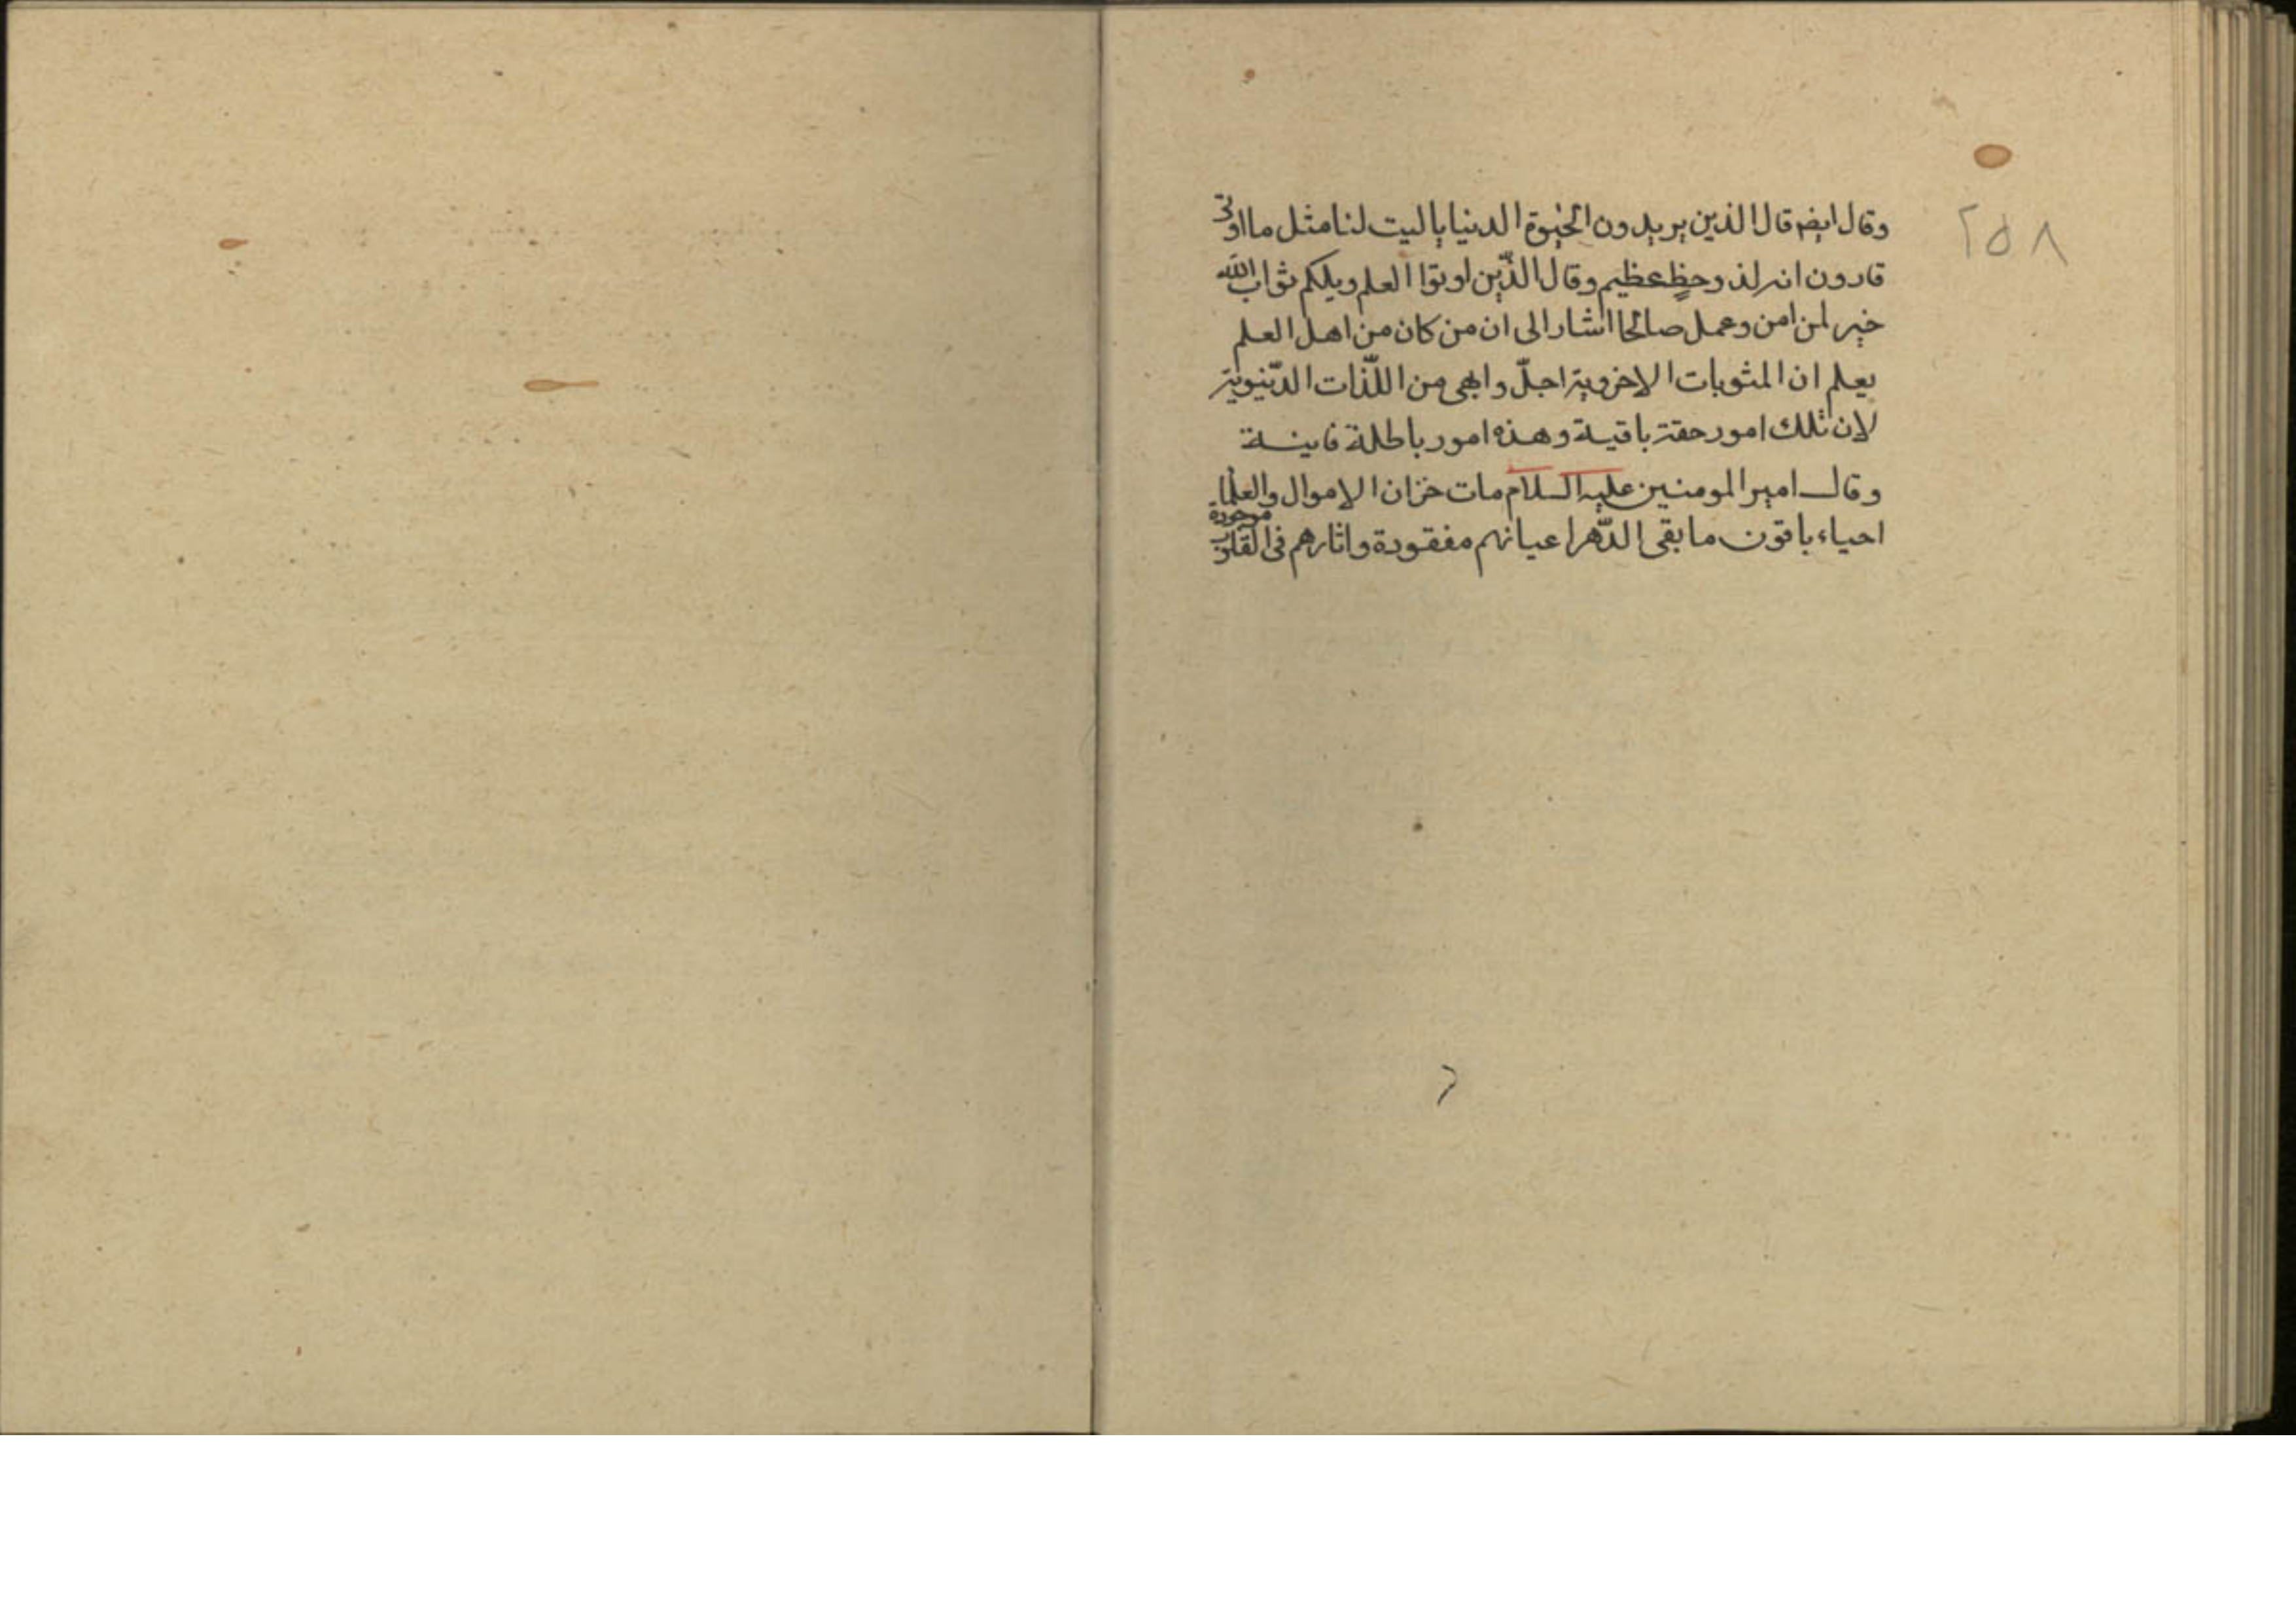 ٢٥٨
وقال ايضا قال الذين يريدون الحيوة الدنيا ياليت لنا مثل ما اوتى
قارون انه لذو حظٍ عظيم وقال الذّين اوتوا العلم ويلكم ثواب الله
خير لمن امن وعمل صالحا اشار الى ان من كان من اهل العلم
يعلم ان المثوبات الاخروية اجلّ وابهى من اللّذات الدّنيوية
لان تلك امور حقة باقية وهذه امور باطلة فانية
وقال امير المومنين عليه السلام مات خزان الاموال والعلماء
احياء باقون ما بقى الدّهر اعيانهم مفقودة واثارهم فى القلوب موجودة